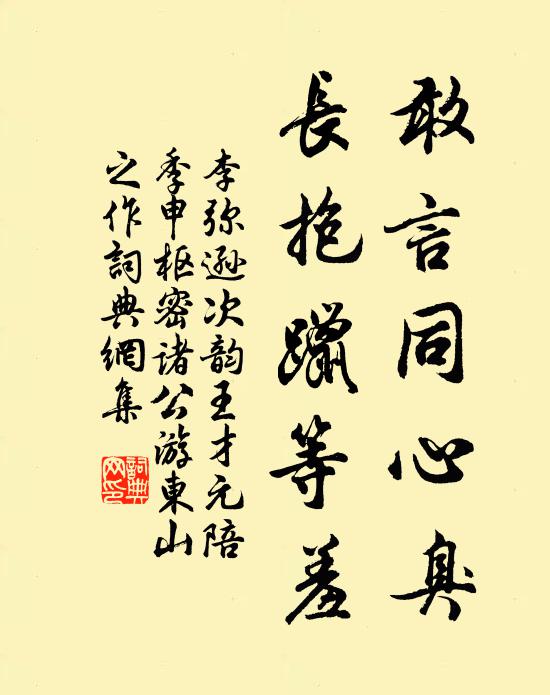 敢言同心臭
長抱躐等羞
李弥遜次韵王才元陪
季申枢密诸公游東山
之作詞典網集
詞典网印